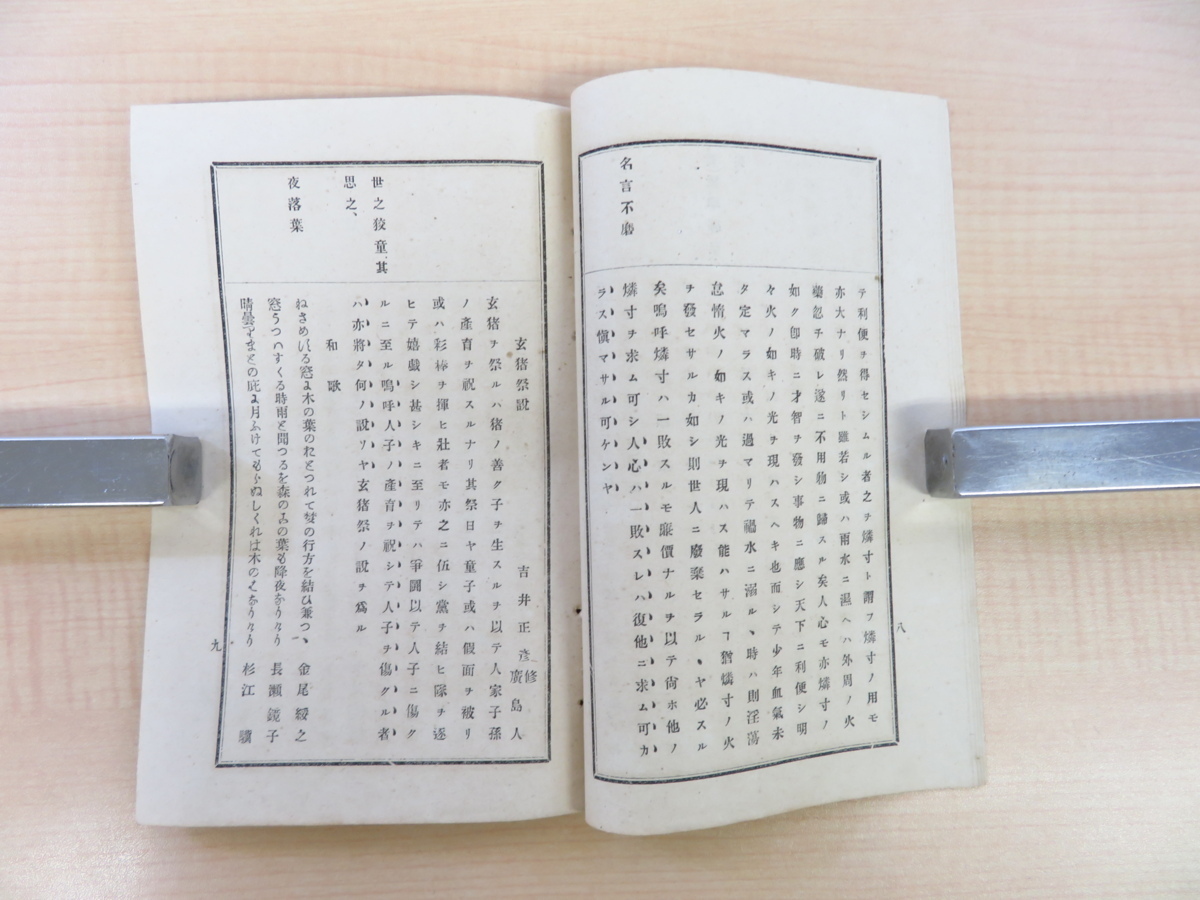 テ利便ヲ得セシムル者之ヲ燐寸ト謂フ燐寸ノ用モ
亦大ナリ然リト雖若シ或ハ雨水ニ濕ヘハ外周ノ火
藥忽チ破レ遂ニ不用物ニ歸スル矣人心モ亦燐寸ノ
如ク卽時ニ才智ヲ發シ事物ニ應シ天下ニ利便シ明
々火ノ如キノ光ヲ現ハスヘキ也而シテ少年血氣未
タ定マラス或ハ過マリテ禍水ニ溺ル丶時ハ則淫蕩
怠惰火ノ如キノ光ヲ現ハス能ハサルヿ猶燐寸ノ火
ヲ發セサルカ如シ則世人ニ廢棄セラル丶ヤ必スル
矣嗚呼燐寸ハ一敗スルモ廉價ナルヲ以テ尙ホ他ノ
燐寸ヲ求ム可シ人心ハ一敗スレハ復他ニ求ム可カ
ラス愼マサル可ケンヤ
名言不磨
八
玄猪祭說
吉井正彥修
廣島人
玄猪ヲ祭ルハ猪ノ善ク子ヲ生スルヲ以テ人家子孫
ノ產育ヲ祝スルナリ其祭日ヤ童子或ハ假面ヲ被リ
或ハ彩棒ヲ揮ヒ壯者モ亦之ニ伍シ黨ヲ結ヒ隊ヲ逐
ヒテ嬉戲シ甚シキニ至リテハ爭鬪以テ人子ニ傷ク
ルニ至ル嗚呼人子ノ產育ヲ祝シテ人子ヲ傷クル者
ハ亦將タ何ノ說ソヤ玄猪祭ノ說ヲ爲ル
世之狡童其
思之、
和歌
夜落葉
ねさめ 窓 木の葉の とつれて 行方を結ひ兼つ丶 金尾綏之
窓うつ すくる時雨と聞つるを森の 葉も降夜 長瀨鏡子
晴曇 との庇 月ふけて しくれは木の 杉江
九